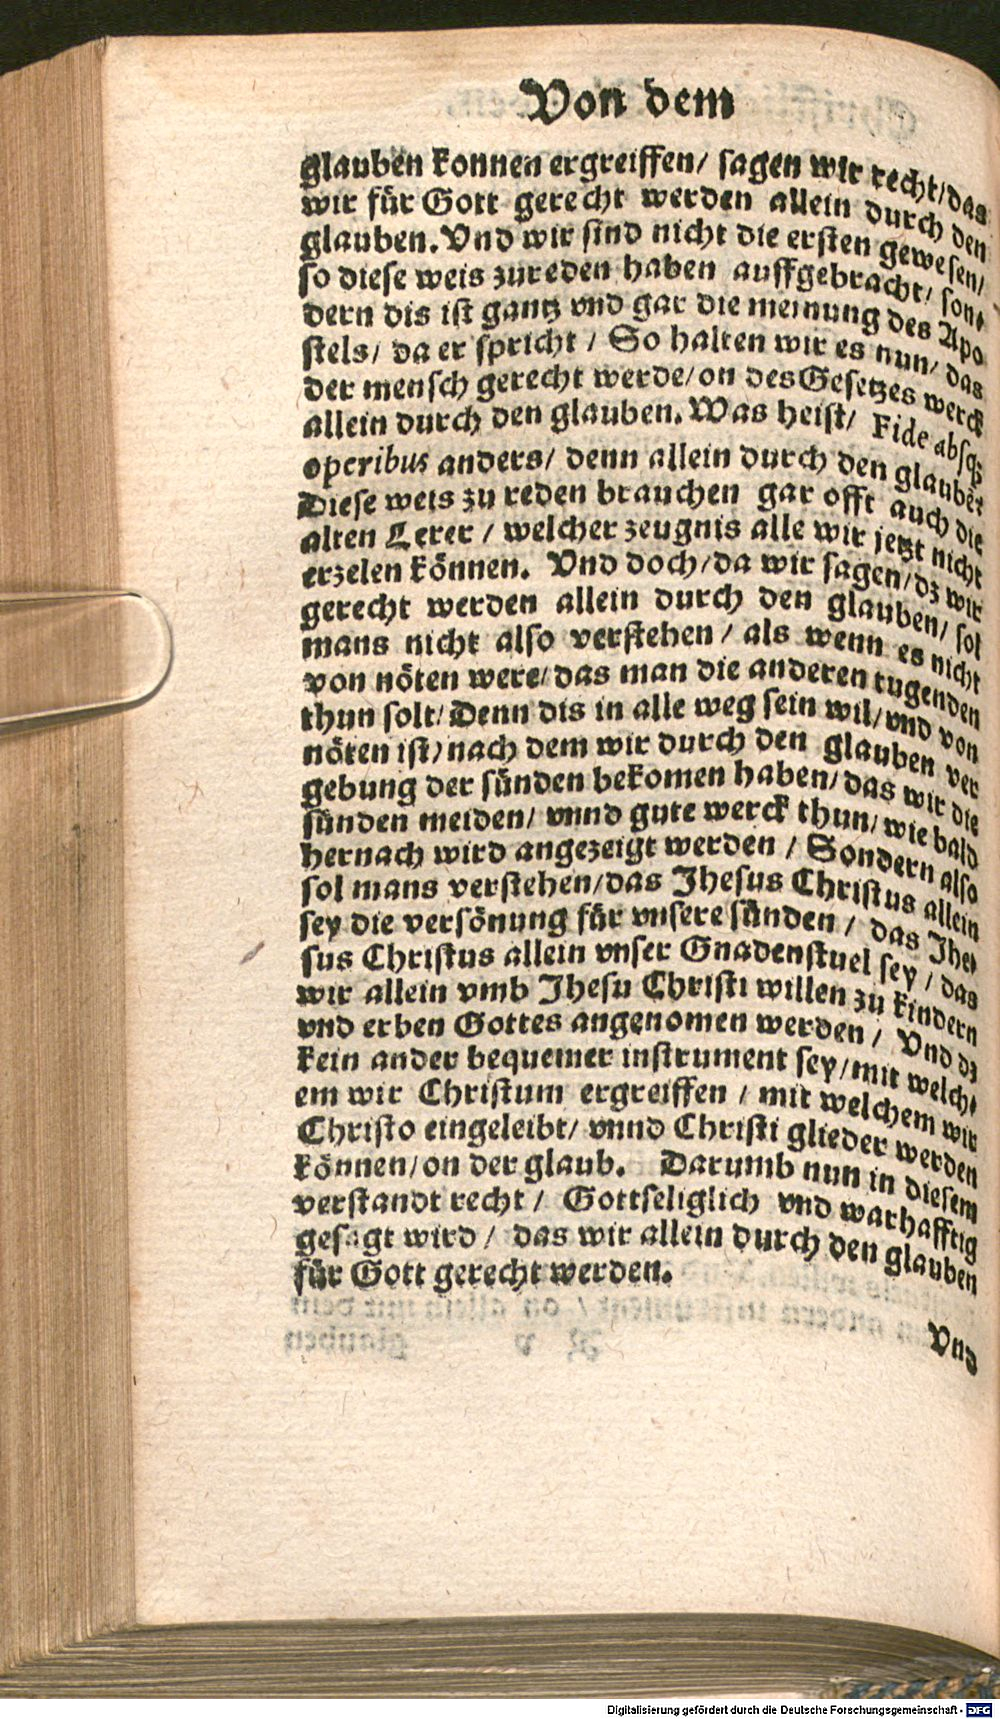 Von dem
glauben konnen ergreiffen/ sagen wir recht/ das
wir für Gott gerecht werden allein durch den
glauben. Vnd wir sind nicht die ersten gewesen/
so diese weis zureden haben auffgebracht/ son-
dern dis ist gantz vnd gar die meinung des Apo
stels/ da er spricht / So halten wir es nun/ das
der mensch gerecht werde/ on des Gesetzes werck
allein durch den glauben. Was heist/ Fide absqȝ
operibus anders/ denn allein durch den glaubē?
Diese weis zu reden brauchen gar offt auch die
alten Lerer / welcher zeugnis alle wir jetzt nicht
erzelen können. Vnd doch/ da wir sagen/ dz wir
gerecht werden allein durch den glauben/ sol
mans nicht also verstehen / als wenn es nicht
von nöten were/ das man die anderen tugenden
thun solt/ Denn dis in alle weg sein wil/ vnd von
nöten ist/ nach dem wir durch den glauben ver
gebung der sünden bekomen haben/ das wir die
sünden meiden/ vnnd gute werck thun/ wie bald
hernach wird angezeigt werden / Sondern also
sol mans verstehen/ das Jhesus Christus allein
sey die versönung für vnsere sünden / das Jhe-
sus Christus allein vnser Gnadenstuel sey / das
wir allein vmb Jhesu Christi willen zu kindern
vnd erben Gottes angenomen werden / Vnd dz
kein ander bequemer instrument sey/ mit welch-
em wir Christum ergreiffen / mit welchem wir
Christo eingeleibt/ vnnd Christi glieder werden
können/ on der glaub. Darumb nun in diesem
verstandt recht / Gottseliglich vnd warhafftig
gesagt wird / das wir allein durch den glauben
für Gott gerecht werden.
Vnd
Digitalisierung gefördert durch die Deutsche Forschungsgemeinschaft - DFG